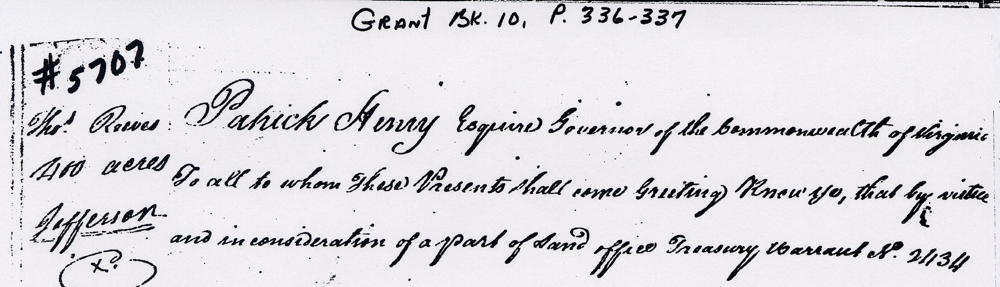 GRANT BK. 10, P. 336-337
#5707
Thos. Reeves
400 acres
Jefferson
Xd.
Patrick Henry Esquire Governor of the Commonwealth of Virginia
To all to whom These Presents shall come Greeting Know ye, that by virtue
and in consideration of a part of Land office Treasury Warrant No. 2434